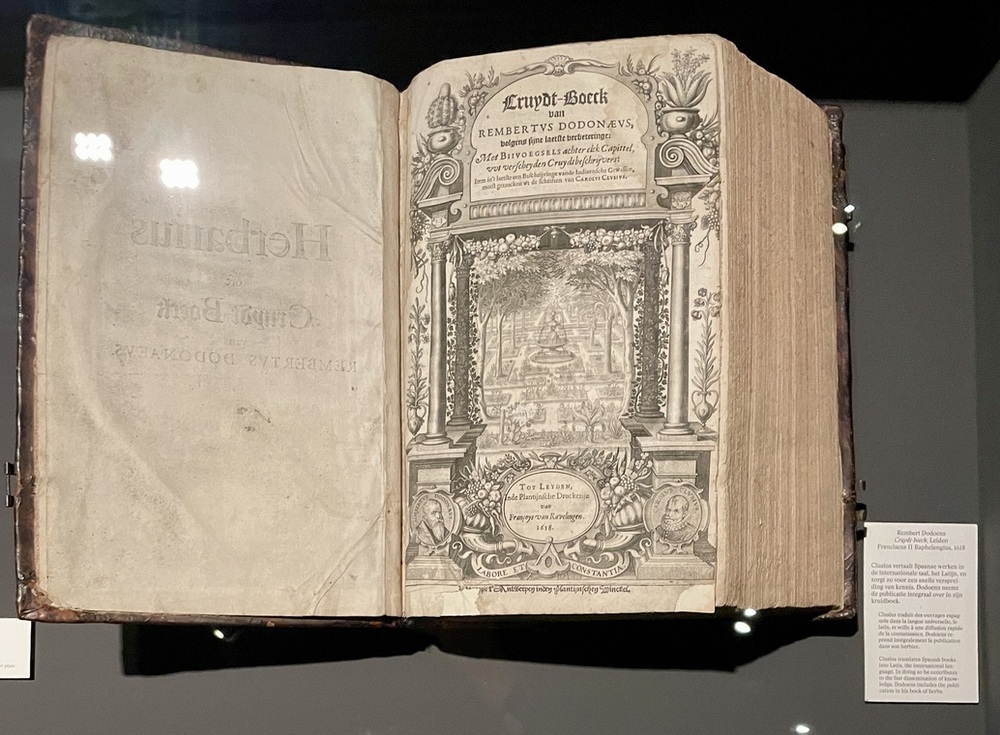 Herbarius
oft
Cruydt-Boeck
van
REMBERTVS DODONAEVS.
Cruydt-Boeck
van
REMBERTVS DODONÆVS,
volgens sijne laetste verbeteringe:
Met BIIVOEGSELS achter elck Capittel,
vvt verscheyden Cruydtbeschrijvers:
Item in't laetste een Beschrijvinge vande Indiaensche Gewassen,
meest getrocken wt de schriften van CAROLVS CLVSIVS.
TOT LEYDEN,
Inde Plantijnsche Druckerije
van
Françoys van Ravelingen.
1618.
LABORE ET CONSTANTIA
Antwerpen indey Plantijnschey Winckel.
Rembert Dodoens
Cruydt-boeck, Leiden
Franciscus II Raphelengius, 1618
Clusius vertaalt Spaanse werken in
de internationale taal, het Latijn, en
zorgt zo voor een snelle versprei-
ding van kennis. Dodoens neemt
de publicatie integraal over in zijn
kruidboek.
Clusius traduit des ouvrages espag-
nols dans la langue universelle, le
latin, et veille à une diffusion rapide
de la connaissance. Dodoens re-
prend intégralement la publication
dans son herbier.
Clusius translates Spanish books
into Latin, the international lan-
guage. In doing so he contributes
to the fast dissemination of know-
ledge. Dodoens includes the publi-
cation in his book of herbs.